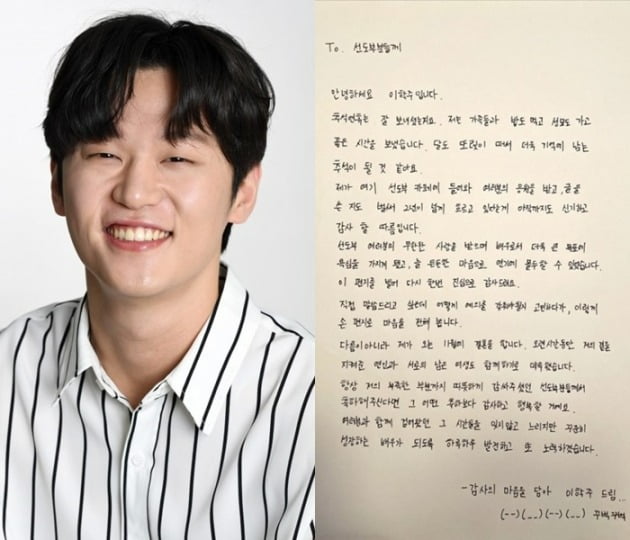 To. 선도부분들께
안녕하세요 이학주입니다.
추석연휴는 잘 보내셨는지요. 저는 가족들과 밥도 먹고 성묘도 가고
좋은 시간을 보냈습니다. 달도 또렷이 떠서 더욱 기억에 남는
추석이 될 것 같아요.
제가 여기 선도부 카페에 들어와 여러분의 응원을 받고, 글을
쓴 지도 벌써 2년이 넘게 흐르고 있다는게 아직까지도 신기하고
감사 할 따름입니다.
선도부 여러분의 무한한 사랑을 받으며 배우로서 더욱 큰 목표와
욕심을 가지게 됐고, 늘 든든한 마음으로 연기에 몰두할 수 있었습니다.
이 편지를 빌어 다시 한번 진심으로 감사드려요.
직접 말씀드리고 싶은데 어떻게 예의를 갖춰야할지 고민하다가, 이렇게
손 편지로 마음을 전해 봅니다.
다름이아니라 제가 오는 11월에 결혼을 합니다. 오랜시간동안 저의 곁을
지켜준 연인과 서로의 남은 여생도 함께하기로 약속했습니다.
항상 저의 부족한 부분까지 따뜻하게 감싸주셨던 선도부분들께서
축하해주신다면 그 어떤 무엇보다 감사하고 행복할 거에요.
여러분과 함께 걸어왔던 그 시간들을 잊지않고 느리지만 꾸준히
성장하는 배우가 되도록 하루하루 발전하고 또 노력하겠습니다.
-감사의 마음을 담아 이학주 드림...
(--)(__)(--)(__) 꾸벅꾸벅